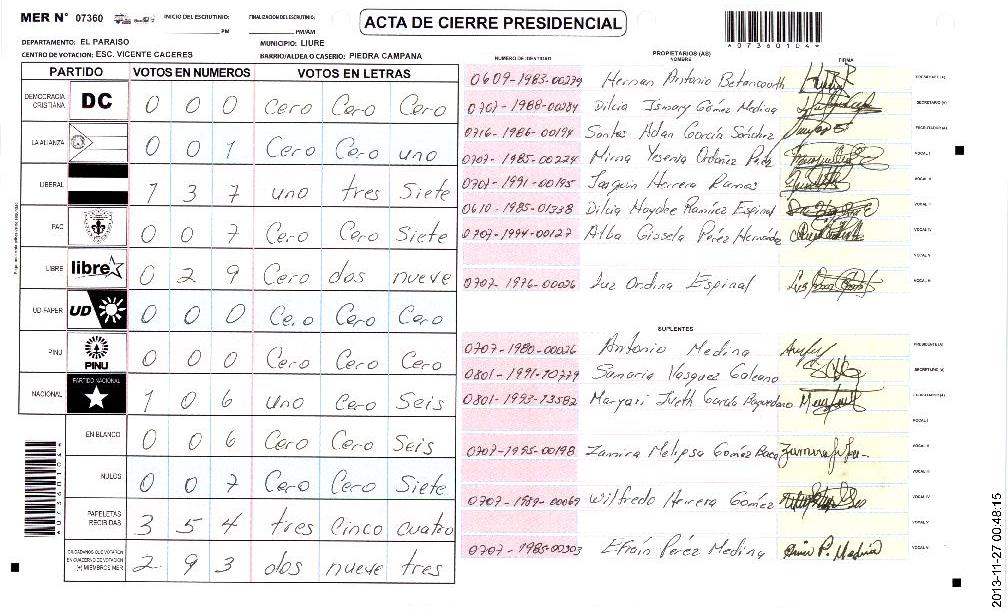 MER N° 07360
INICIO DEL ESCRUTINIO: PM
FINALIZACION DEL ESCRUTINIO: PM/AM
ACTA DE CIERRE PRESIDENCIAL
*07360104*
DEPARTAMENTO: EL PARAISO
MUNICIPIO: LIURE
CENTRO DE VOTACION: ESC. VICENTE CACERES
BARRIO/ALDEA O CASERIO: PIEDRA CAMPANA
PARTIDO VOTOS EN NUMEROS VOTOS EN LETRAS
DEMOCRACIA CRISTIANA DC 0 0 0 Cero Cero Cero
LA ALIANZA 0 0 1 Cero Cero uno
LIBERAL 1 3 7 uno tres Siete
PAC 0 0 7 Cero Cero Siete
LIBRE libre 0 2 9 Cero dos nueve
UD-FAPER UD 0 0 0 Cero Cero Cero
PINU PINU 0 0 0 Cero Cero Cero
NACIONAL PARTIDO NACIONAL 1 0 6 uno Cero Seis
EN BLANCO 0 0 6 Cero Cero Seis
NULOS 0 0 7 Cero Cero Siete
PAPELETAS RECIBIDAS 3 5 4 tres Cinco cuatro
CIUDADANOS QUE VOTARON EN CUADERNO DE VOTACION (+) MIEMBROS MER 2 9 3 dos nueve tres
*07360104*
NUMERO DE IDENTIDAD PROPIETARIOS (AS) NOMBRE FIRMA
0609-1983-00279 Hernan Antonio Betancourth PRESIDENTE (A)
0707-1988-00284 Dilcia Ismary Gómez Medina SECRETARIO (A)
0716-1986-00194 Santos Adan García Sánchez ESCRUTADOR (A)
0707-1985-00224 Mirna Yesenia Ordoñez Pérez VOCAL I
0701-1991-00195 Joaquin Herrera Ramos VOCAL II
0610-1985-01338 Dilcia Haydee Ramírez Espinal VOCAL III
0707-1994-00127 Alba Gissela Pérez Hernández VOCAL IV
VOCAL V
0707-1976-00026 Luz Ordina Espinal VOCAL VI
SUPLENTES
0707-1980-00026 Antonio Medina PRESIDENTE (A)
0801-1991-10779 Samaria Vasquez Galeano SECRETARIO (A)
0801-1993-13582 Maryuri Ilveth García ESCRUTADOR (A)
VOCAL I
0707-1995-00198 Zamira Melipsa Gómez Baca VOCAL II
VOCAL III
0707-1989-00069 Wilfredo Herrera Gómez VOCAL IV
VOCAL V
0707-1985-00303 Efraín Pérez Medina VOCAL VI
2013-11-27 00:48:15